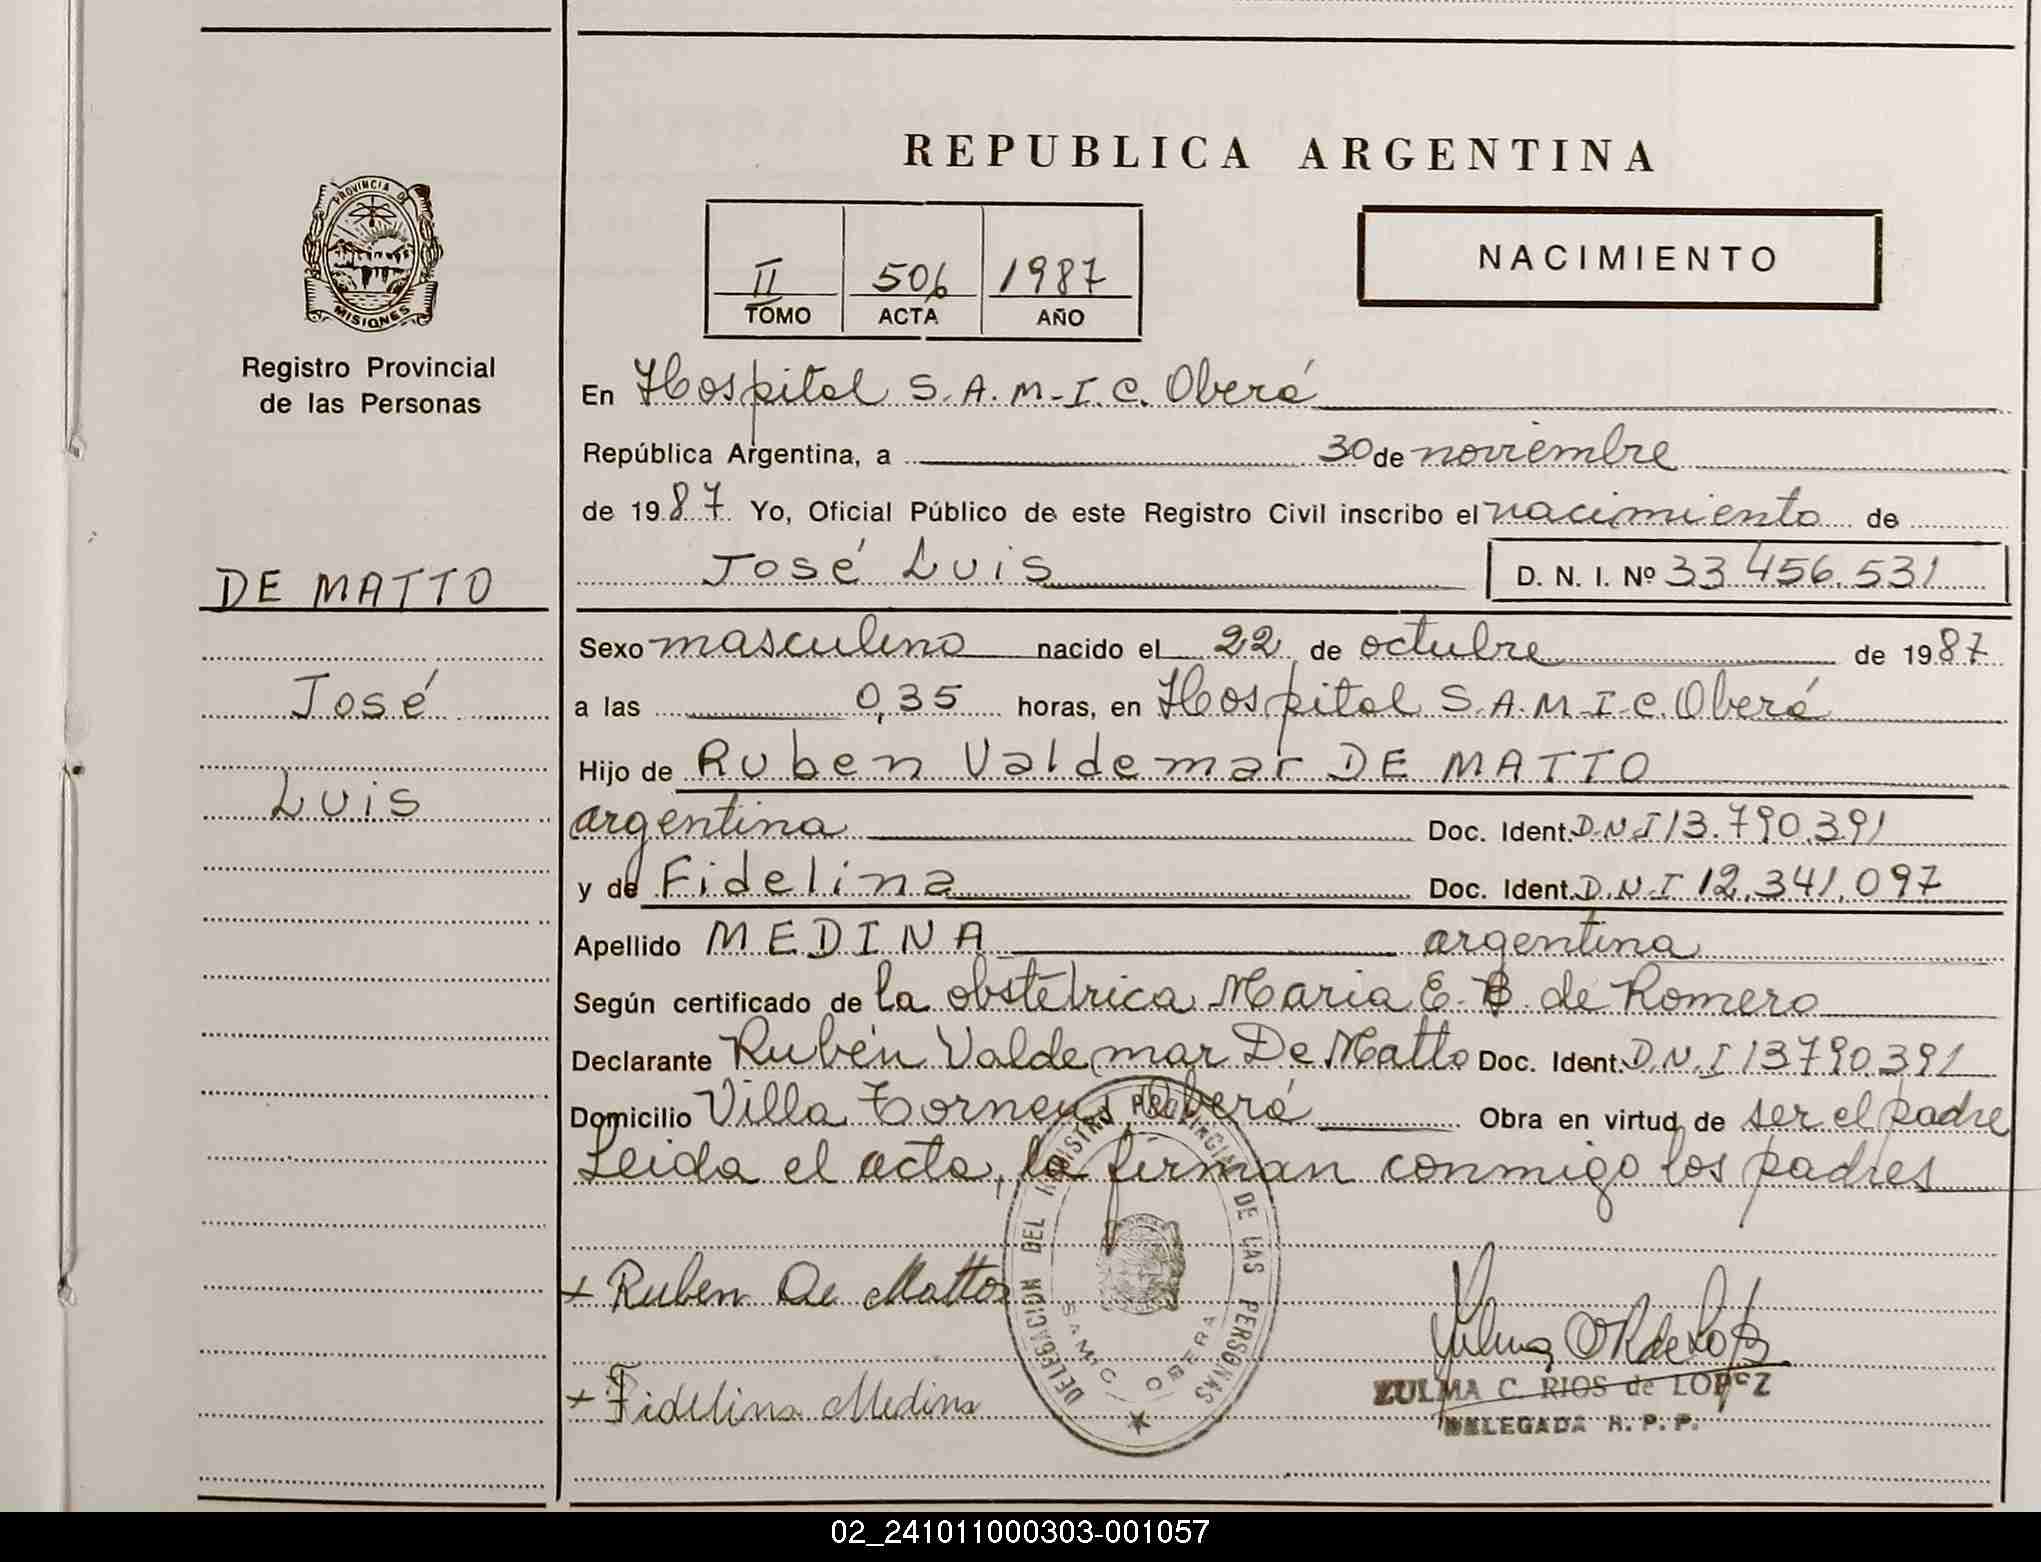 REPUBLICA ARGENTINA
PROVINCIA DE MISIONES
Registro Provincial
de las Personas
II 506 1987
TOMO ACTA AÑO
NACIMIENTO
En Hospital S.A.M.I.C. Oberá
República Argentina, a 30 de noviembre
de 1987 Yo, Oficial Público de este Registro Civil inscribo el nacimiento de
José Luis D. N. I. Nº 33 456.531
DE MATTO
José
Luis
Sexo masculino nacido el 22 de octubre de 1987
a las 0,35 horas, en Hospital S.A.M.I.C. Oberá
Hijo de Ruben Valdemar DE MATTO
argentina Doc. Ident. D.N.I 13.790.391
y de Fidelina Doc. Ident. D.N.I 12.341.097
Apellido MEDINA argentina
Según certificado de la obstétrica Maria E. B. de Romero
Declarante Rubén Valdemar De Matto Doc. Ident. D.N.I 13790391
Domicilio Villa Torneus, Oberá Obra en virtud de ser el padre
Leida el acta, la firman conmigo los padres
+ Ruben De Mattos
+ Fidelina Medina
DELEGACION DEL REGISTRO PROVINCIAL DE LAS PERSONAS
SAMIC OBERA
ZULMA C. RIOS de LOPEZ
DELEGADA R. P. P.
02_241011000303-001057